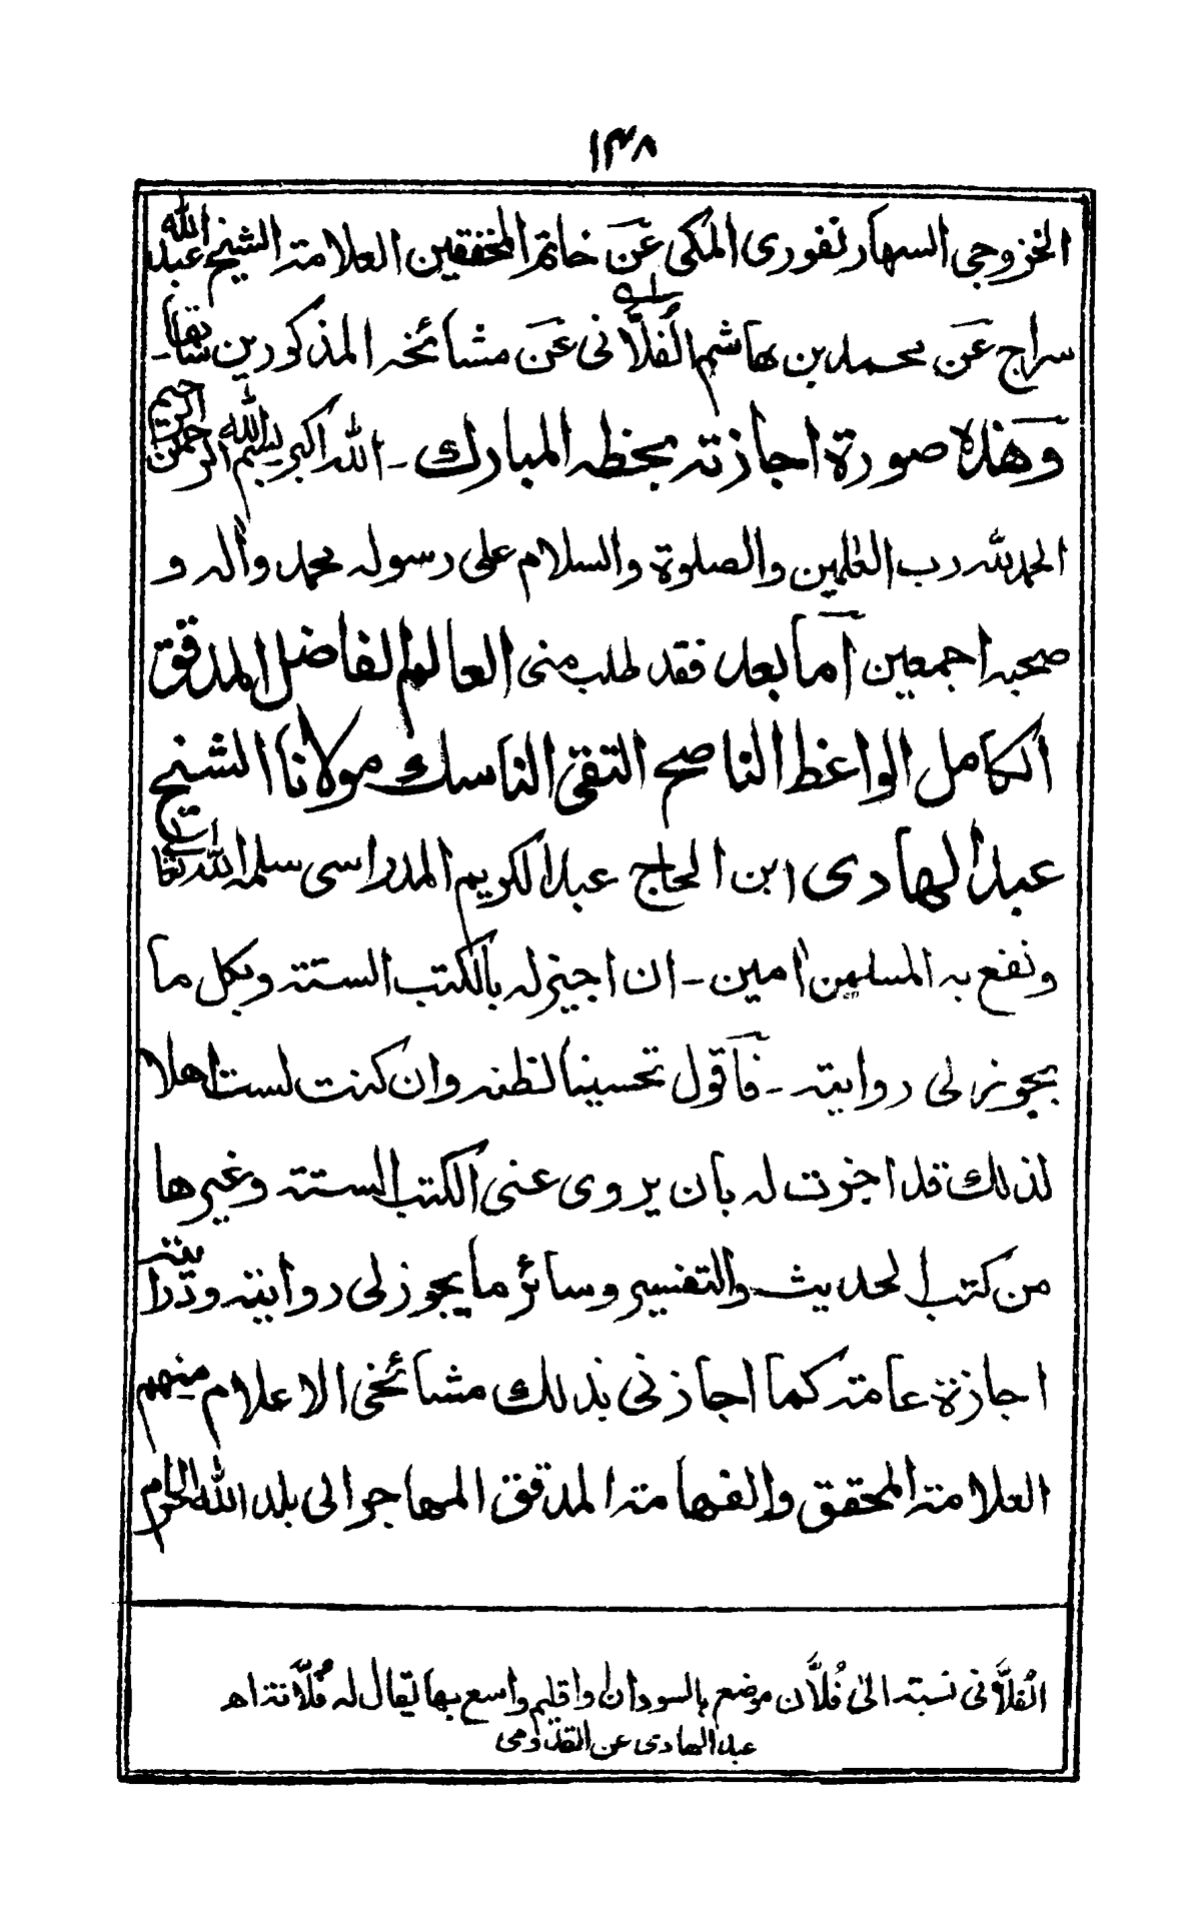 ١٣٨
الخزوجى السهارنفورى المكى عَن خاتم المحققين العلامة الشيخ عبد الله
سراج عَن محمد بن هاشم الفُلَّانى عَن مشائخه المذكورين سابقا ۔
وَهٰذه صورة اجازته بخطه المبارك ۔ الله اكبر بسم الله الرحمن الرحيم
الحمد لله رب العٰلمين والصلوة والسلام على رسوله محمد وآله و
صحبه اجمعين آما بعد فقد طلب منى العالم الفاضل المدقق
الكامل الواعظ الناصح التقى الناسك مولانا الشيخ
عبد الهادى ابن الحاج عبد الكريم المدراسى سلمه الله تعالى
ونفع به المسلمين اٰمين ۔ ان اجيز له بالكتب الستة وبكل ما
يجوز لى روايته ۔ فَاَقول تحسينا لظنه وان كنت لست اهلا
لذلك قد اجزت له بان يروى عنى الكتب الستة وغيرها
من كتب الحديث والتفسير وسائر ما يجوز لى روايته ودرايته
اجازة عامة كما اجازنى بذلك مشائخى الاعلام منهم
العلامة المحقق والفهامة المدقق المهاجر الى بلد الله الحرام
الفُلَّانى نسبته الىٰ فُلَّان موضع بالسودان واقليم واسع بها يقال له فُلَّانة اھ
عبد الهادى عن القدومى